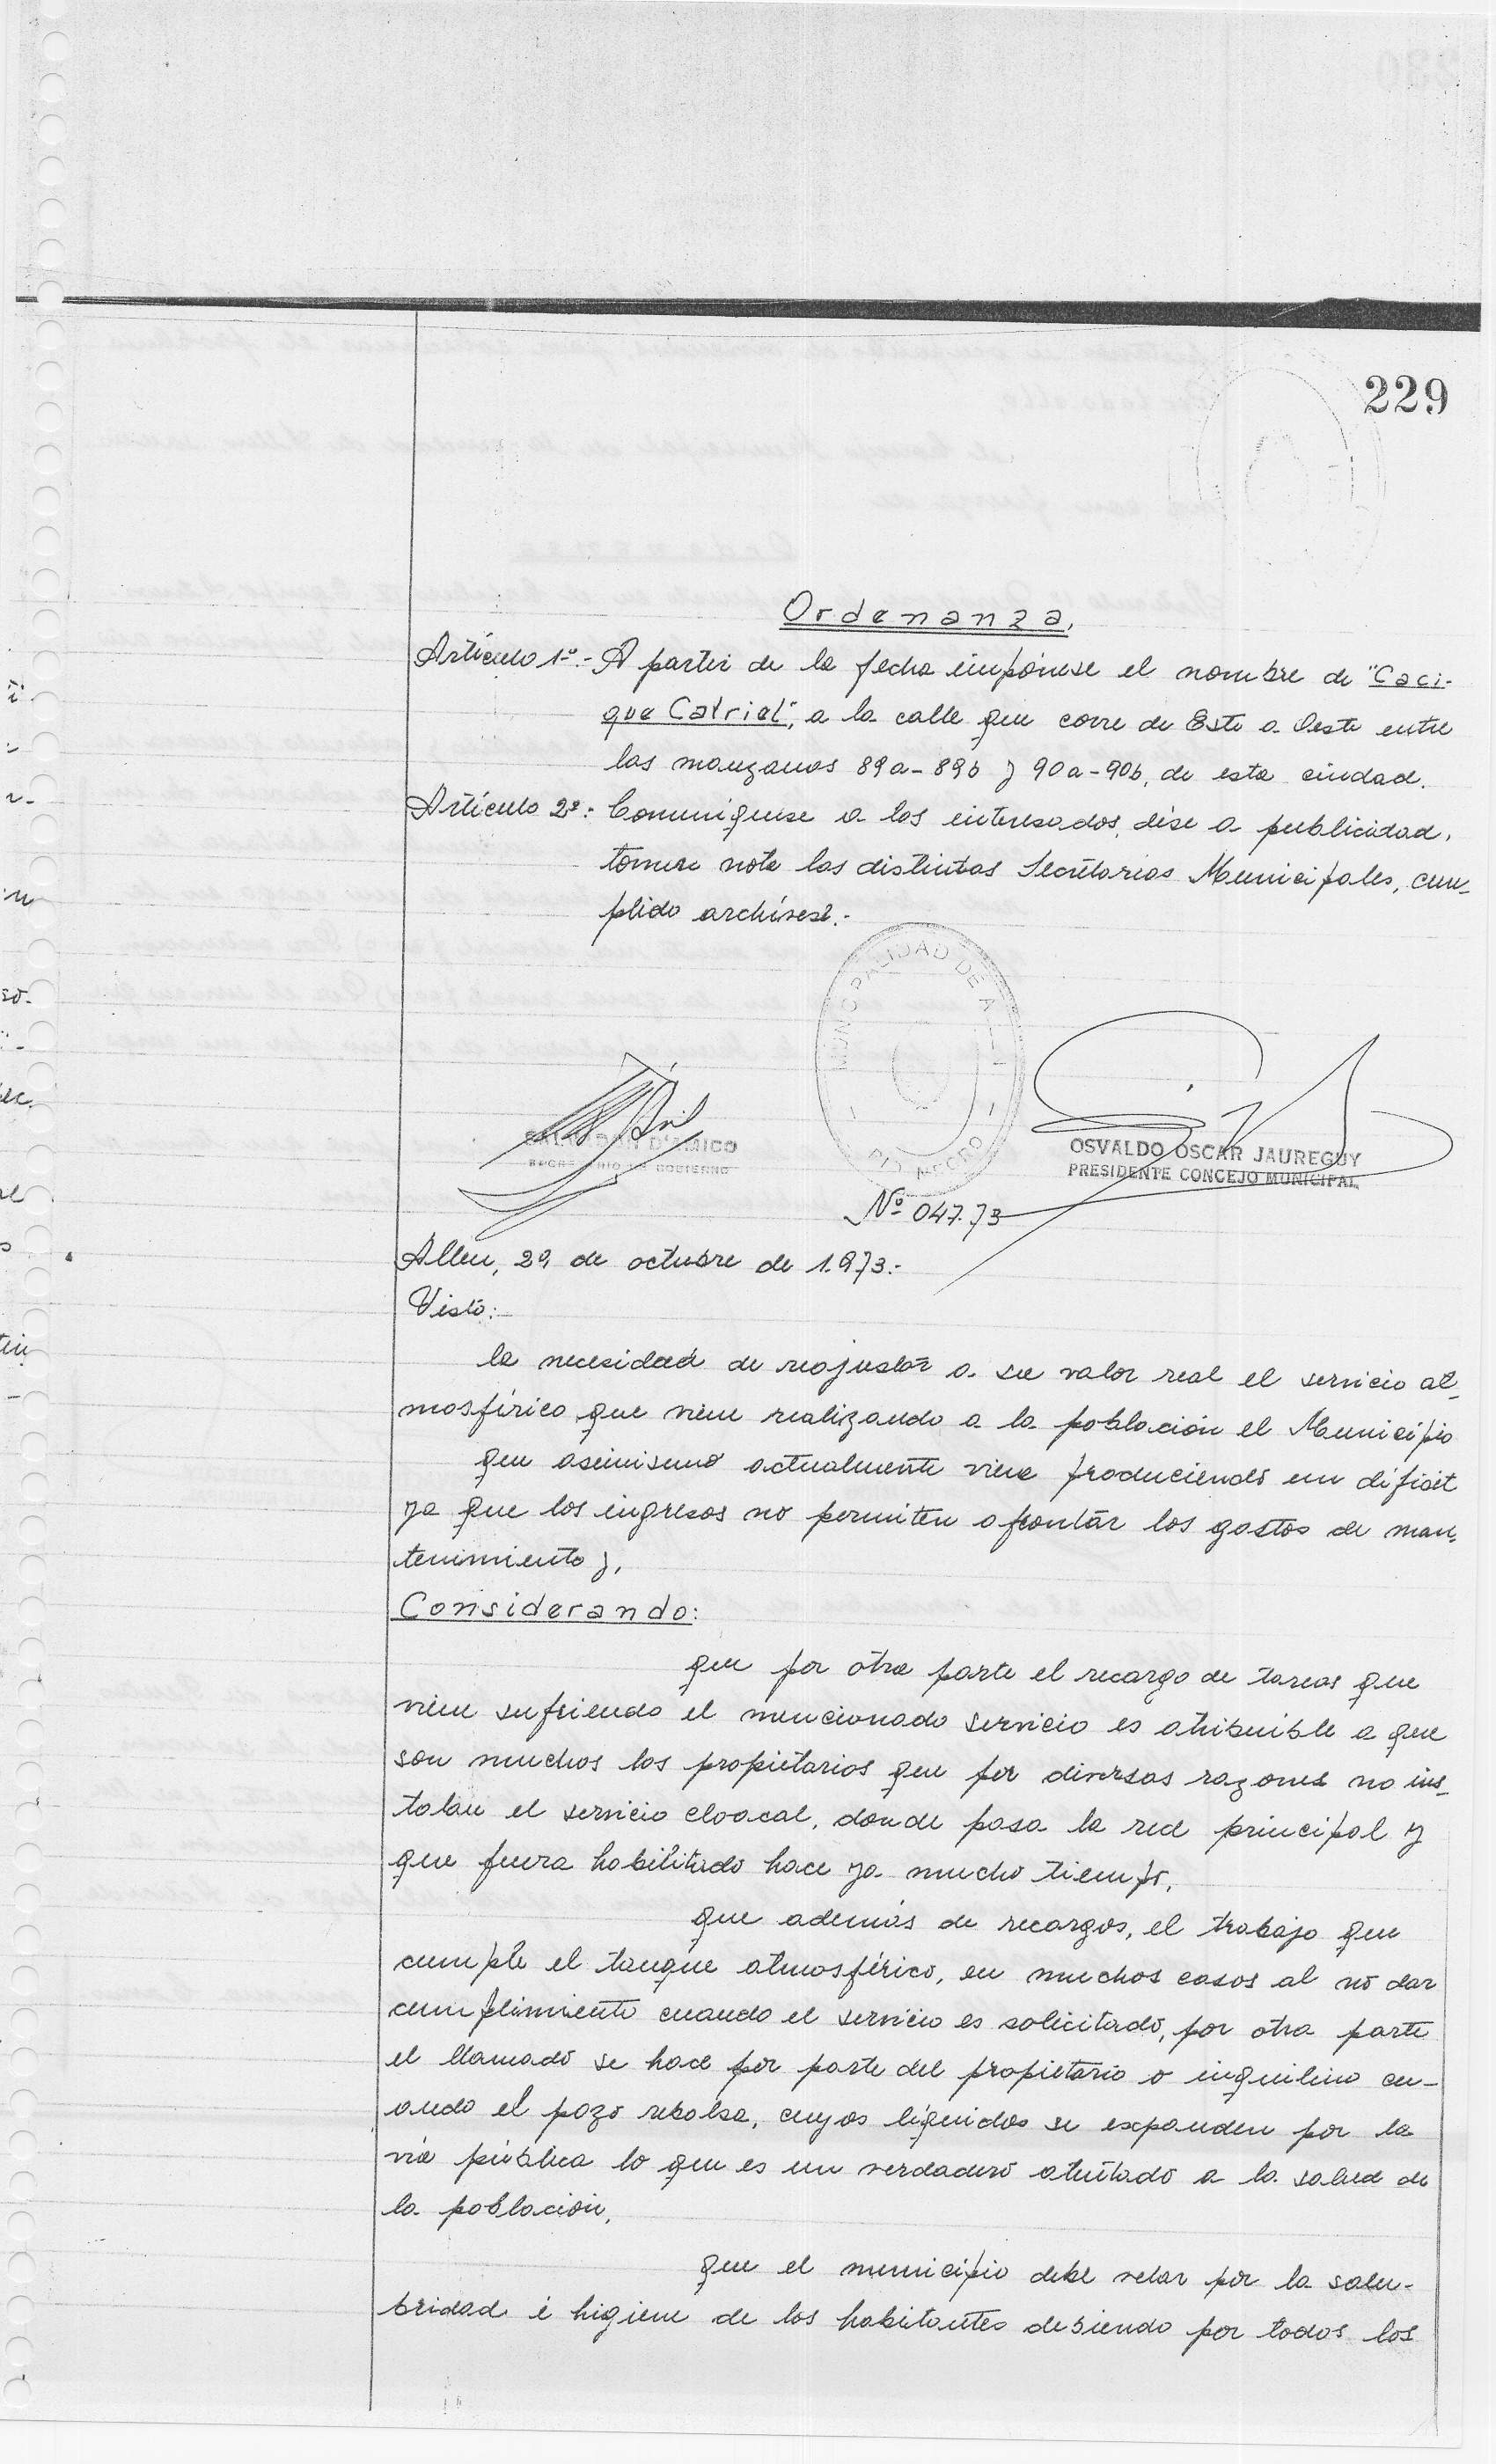 229
Ordenanza.
Artículo 1º.- A partir de la fecha impónese el nombre de "Caci-
que Catriel", a la calle que corre de Este a Oeste entre
las manzanas 89a-89b y 90a-90b, de esta ciudad.
Artículo 2º: Comuníquese a los interesados, dése a publicidad,
tomen nota las distintas Secretarias Municipales, cum-
plido archívese.-
MUNICIPALIDAD DE ALLEN
RIO NEGRO
SALVADOR D'AMICO
SECRETARIO DE GOBIERNO
OSVALDO OSCAR JAUREGUY
PRESIDENTE CONCEJO MUNICIPAL
Nº 047.73
Allen, 29, de octubre de 1.973.-
Visto:
la necesidad de reajustar a su valor real el servicio at-
mosférico que viene realizando a la población el Municipio
que asimismo actualmente viene produciendo un dificit
ya que los ingresos no permiten afrontar los gastos de man-
tenimiento y,
Considerando:
que por otra parte el recargo de tareas que
viene sufriendo el mencionado servicio es atribuible a que
son muchos los propietarios que por diversas razones no ins-
talan el servicio cloacal, donde pasa la red principal y
que fuera habilitado hace ya mucho tiempo,
que además de recargos, el trabajo que
cumple el tanque atmosférico, en muchos casos al no dar
cumplimiento cuando el servicio es solicitado, por otra parte
el llamado se hace por parte del propietario o inquilino cu-
ando el pozo rebalsa, cuyos líquidos se expanden por la
vía pública lo que es un verdadero atentado a la salud de
la población,
que el municipio debe velar por la salu-
bridad é higiene de los habitantes debiendo por todos los